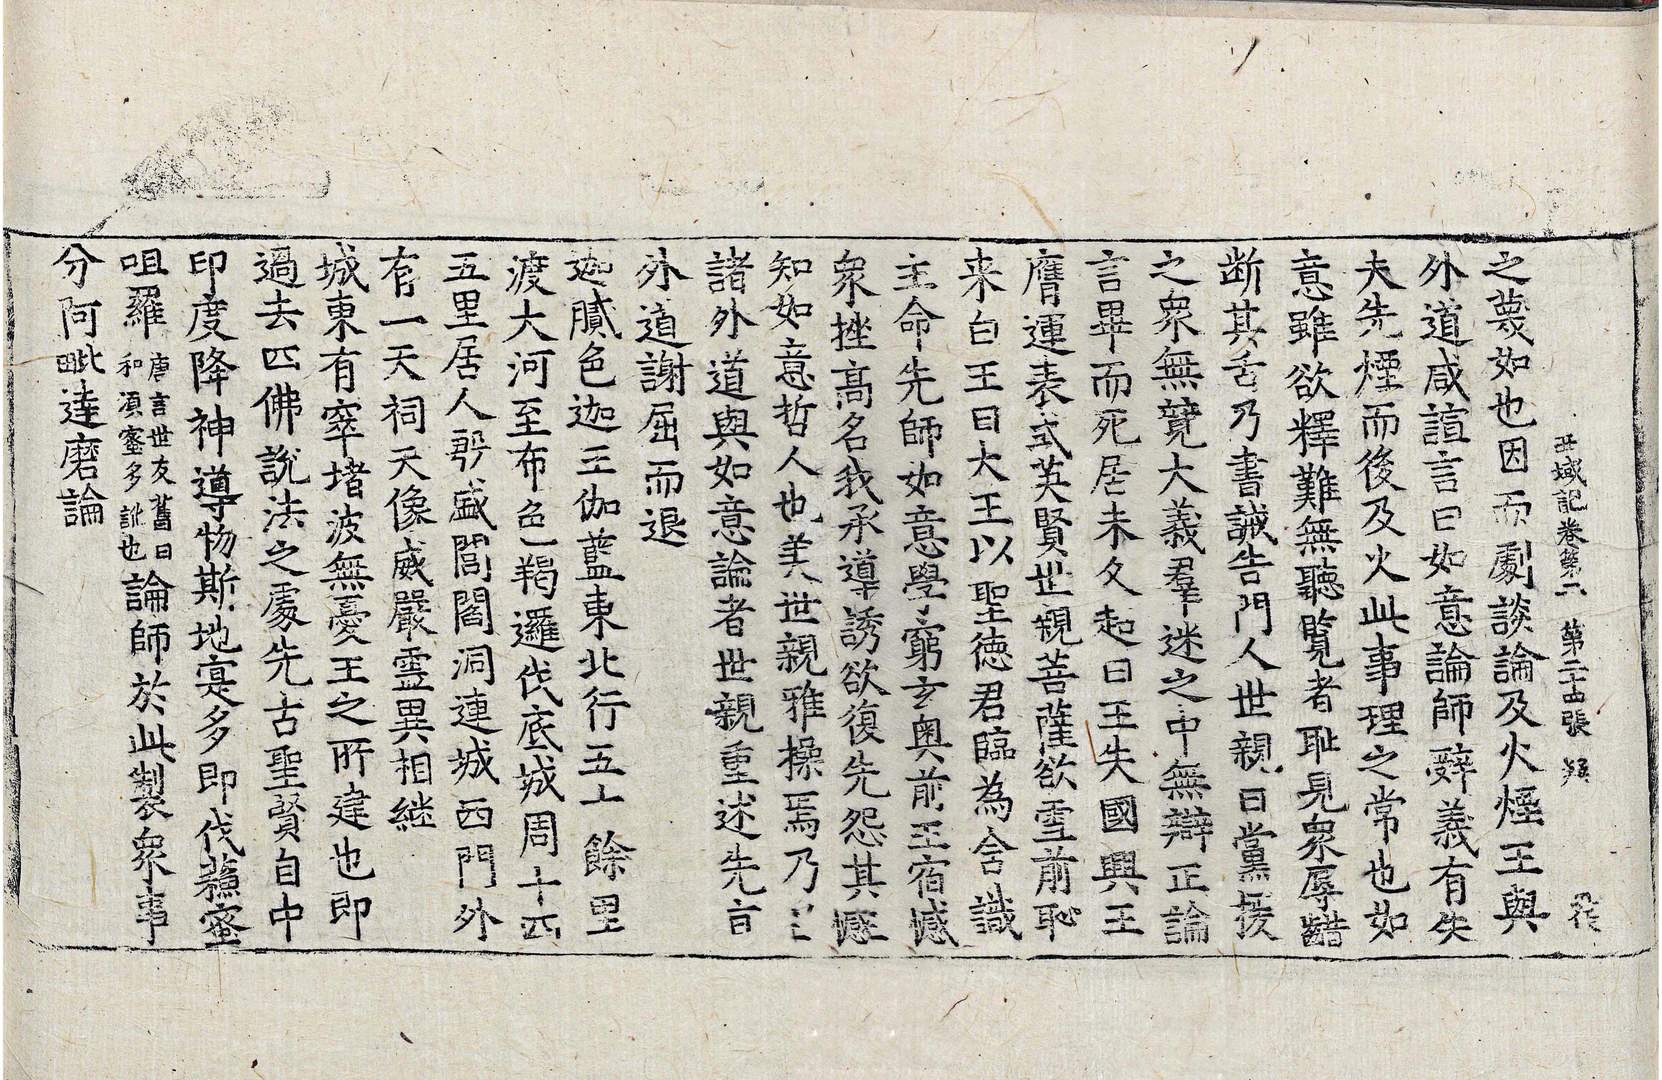 西域記卷第二 第二十四張
之蔑如也因而劇談論及火煙王與
外道咸諠言曰如意論師辭義有失
夫先煙而後及火此事理之常也如
意雖欲釋難無聽覽者恥見衆辱齰
断其舌乃書誡告門人世親曰黨援
之衆無競大義羣迷之中無辯正論
言畢而死居未久超曰王失國興王
膺運表式英賢世親菩薩欲雪前恥
来白王曰大王以聖德君臨為含識
主命先師如意學窮玄奥前王宿憾
衆挫高名我承導誘欲復先怨其
知如意哲人也美世親雅操焉乃
諸外道與如意論者世親重述先旨
外道謝屈而退
迦膩色迦王伽藍東北行五十餘里
渡大河至布色羯邏伐底城周十四
五里居人殷盛閭閻洞連城西門外
有一天祠天像威嚴靈異相継
城東有窣堵波無憂王之所建也即
過去四佛說法之處先古聖賢自中
印度降神導物斯地寔多即伐蘇蜜
呾羅唐言世友舊曰和須蜜多訛也論師於此製衆事
分阿毗達磨論